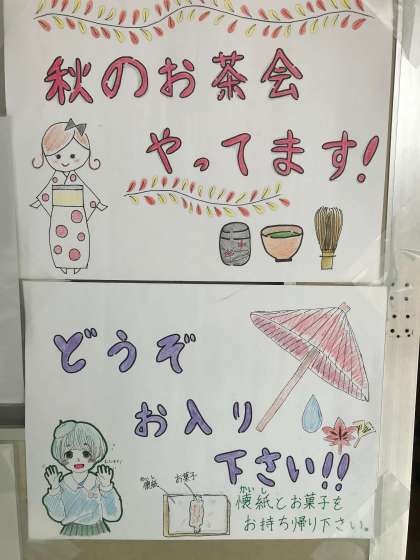 秋のお茶会
やってます!
どうぞ
お入り
下さい!!
かいし
懐紙
お菓子
かいし
懐紙とお菓子を
お持ち帰り下さい。